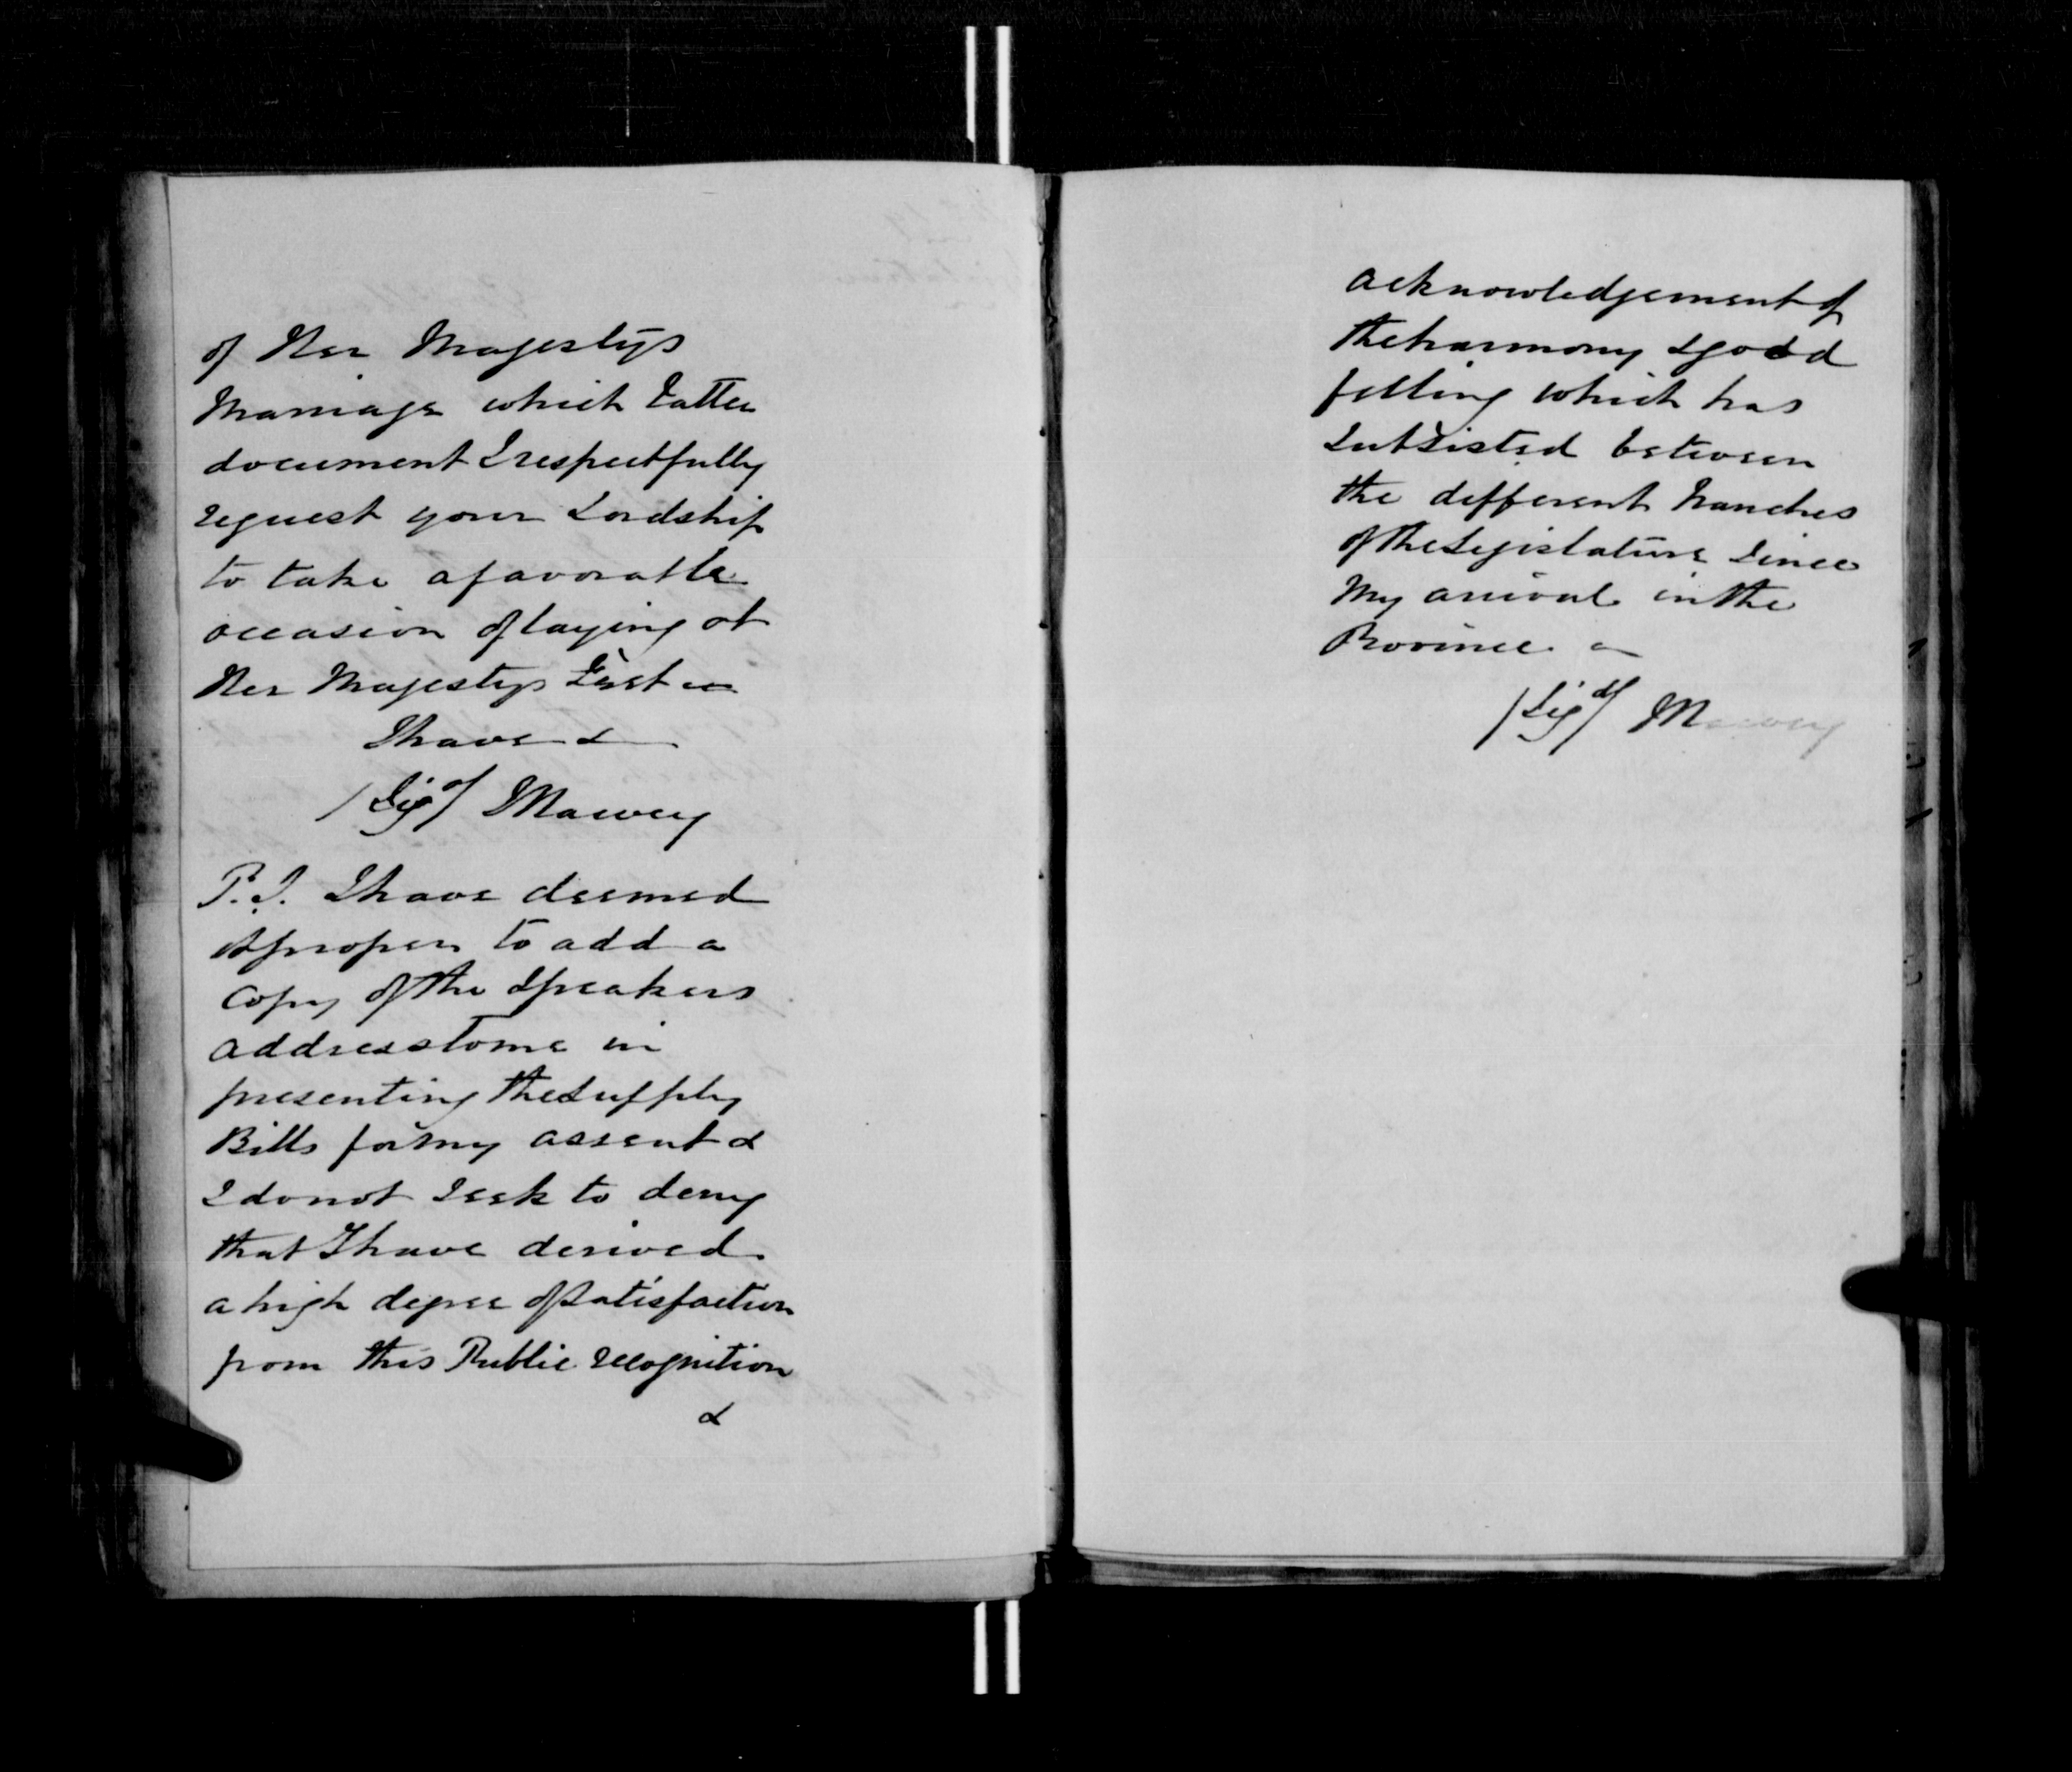 of Her Majestys
Marriage which latter
document I respectfully
request your Lordship
to take a favorable
occasion of laying at
Her Majestys Feet
I have &
/Sigd/ J Harvey
P.S. I have deemed
it proper to add a
copy of the Speakers
address to me in
presenting the Supply
Bills for my assent &
I do not seek to deny
that I have derived
a high degree of satisfaction
from this Public recognition
&
acknowledgement of
the harmony & good
feeling which has
subsisted between
the different branches
of the Legislature since
my arrival in the
Province
/Sigd/ J Harvey